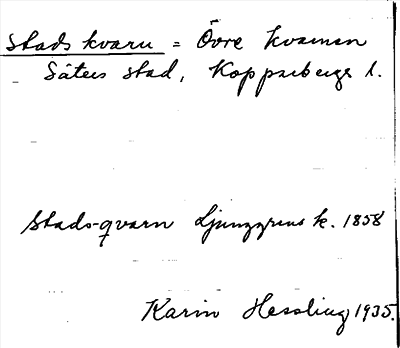 Stads kvarn = Övre kvarnen
Säters stad, Kopparbergs l.
Stads-qvarn Ljunggrens k. 1858
Karin Hessling 1935.